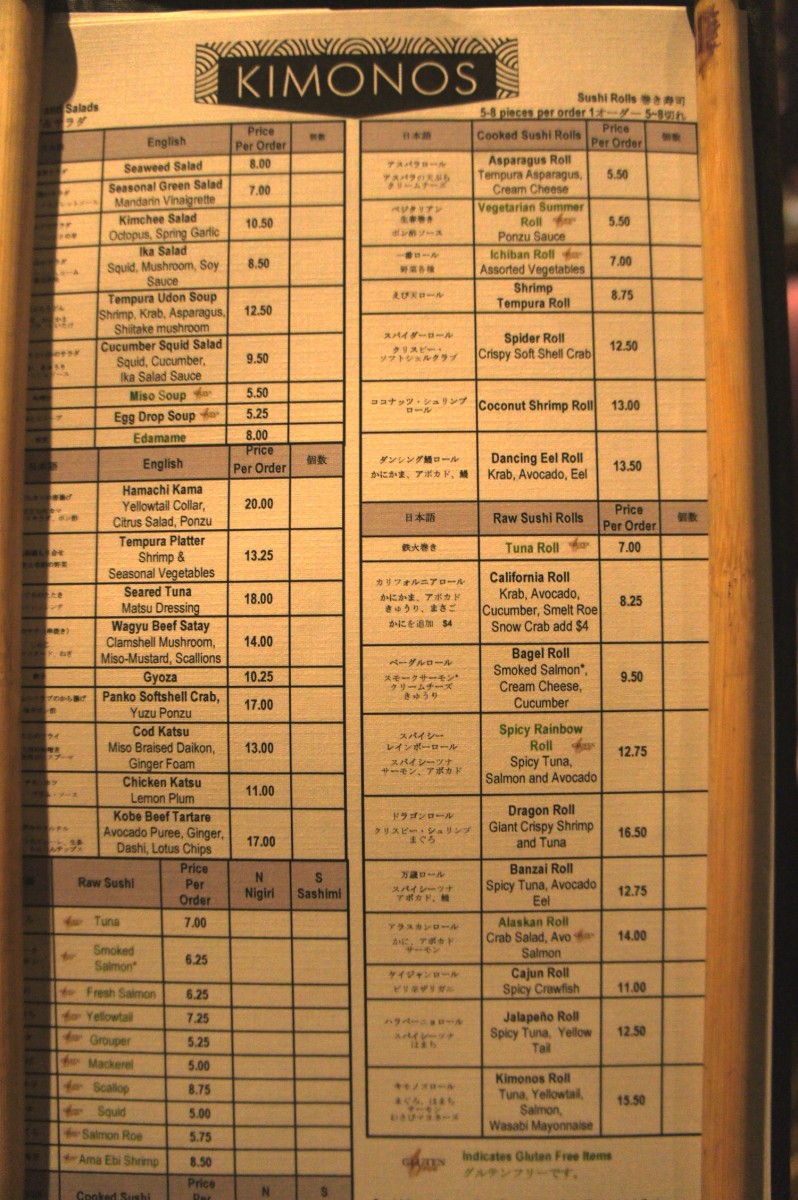 KIMONOS
and Salads
ラダ
English
Price
Per Order
個数
Seaweed Salad
8.00
Seasonal Green Salad
Mandarin Vinaigrette
7.00
Kimchee Salad
Octopus, Spring Garlic
10.50
Ika Salad
Squid, Mushroom, Soy
Sauce
8.50
Tempura Udon Soup
Shrimp, Krab, Asparagus,
Shiitake mushroom
12.50
Cucumber Squid Salad
Squid, Cucumber,
Ika Salad Sauce
9.50
Miso Soup
5.50
Egg Drop Soup
5.25
Edamame
8.00
English
Price
Per Order
個数
Hamachi Kama
Yellowtail Collar,
Citrus Salad, Ponzu
20.00
Tempura Platter
Shrimp &
Seasonal Vegetables
13.25
Seared Tuna
Matsu Dressing
18.00
Wagyu Beef Satay
Clamshell Mushroom,
Miso-Mustard, Scallions
14.00
Gyoza
10.25
Panko Softshell Crab,
Yuzu Ponzu
17.00
Cod Katsu
Miso Braised Daikon,
Ginger Foam
13.00
Chicken Katsu
Lemon Plum
11.00
Kobe Beef Tartare
Avocado Puree, Ginger,
Dashi, Lotus Chips
17.00
Raw Sushi
Price
Per
Order
N
Nigiri
S
Sashimi
Tuna
7.00
Smoked
Salmon*
6.25
Fresh Salmon
6.25
Yellowtail
7.25
Grouper
5.25
Mackerel
5.00
Scallop
8.75
Squid
5.00
Salmon Roe
5.75
Ama Ebi Shrimp
8.50
Cooked Sushi
Price
Per
N
S
Sushi Rolls 巻き寿司
5-8 pieces per order 1オーダー 5~8切れ
日本語
Cooked Sushi Rolls
Price
Per Order
個数
アスパラロール
アスパラの天ぷら
クリームチーズ
Asparagus Roll
Tempura Asparagus,
Cream Cheese
5.50
ベジタリアン
生春巻き
ポン酢ソース
Vegetarian Summer
Roll
Ponzu Sauce
5.50
一番ロール
野菜各種
Ichiban Roll
Assorted Vegetables
7.00
えび天ロール
Shrimp
Tempura Roll
8.75
スパイダーロール
クリスピー・
ソフトシェルクラブ
Spider Roll
Crispy Soft Shell Crab
12.50
ココナッツ・シュリンプ
ロール
Coconut Shrimp Roll
13.00
ダンシング鰻ロール
かにかま、アボカド、鰻
Dancing Eel Roll
Krab, Avocado, Eel
13.50
日本語
Raw Sushi Rolls
Price
Per Order
個数
鉄火巻き
Tuna Roll
7.00
カリフォルニアロール
かにかま、アボカド
きゅうり、まさご
かにを追加 $4
California Roll
Krab, Avocado,
Cucumber, Smelt Roe
Snow Crab add $4
8.25
ベーグルロール
スモークサーモン*
クリームチーズ
きゅうり
Bagel Roll
Smoked Salmon*,
Cream Cheese,
Cucumber
9.50
スパイシー
レインボーロール
スパイシーツナ
サーモン、アボカド
Spicy Rainbow
Roll
Spicy Tuna,
Salmon and Avocado
12.75
ドラゴンロール
クリスピー・シュリンプ
まぐろ
Dragon Roll
Giant Crispy Shrimp
and Tuna
16.50
万歳ロール
スパイシーツナ
アボカド、鰻
Banzai Roll
Spicy Tuna, Avocado
Eel
12.75
アラスカンロール
かに、アボカド
サーモン
Alaskan Roll
Crab Salad, Avo
Salmon
14.00
ケイジャンロール
ピリ辛ザリガニ
Cajun Roll
Spicy Crawfish
11.00
ハラペーニョロール
スパイシーツナ
はまち
Jalapeño Roll
Spicy Tuna, Yellow
Tail
12.50
キモノズロール
まぐろ、はまち
サーモン
わさびマヨネーズ
Kimonos Roll
Tuna, Yellowtail,
Salmon,
Wasabi Mayonnaise
15.50
GLUTEN
Indicates Gluten Free Items
グルテンフリーです。